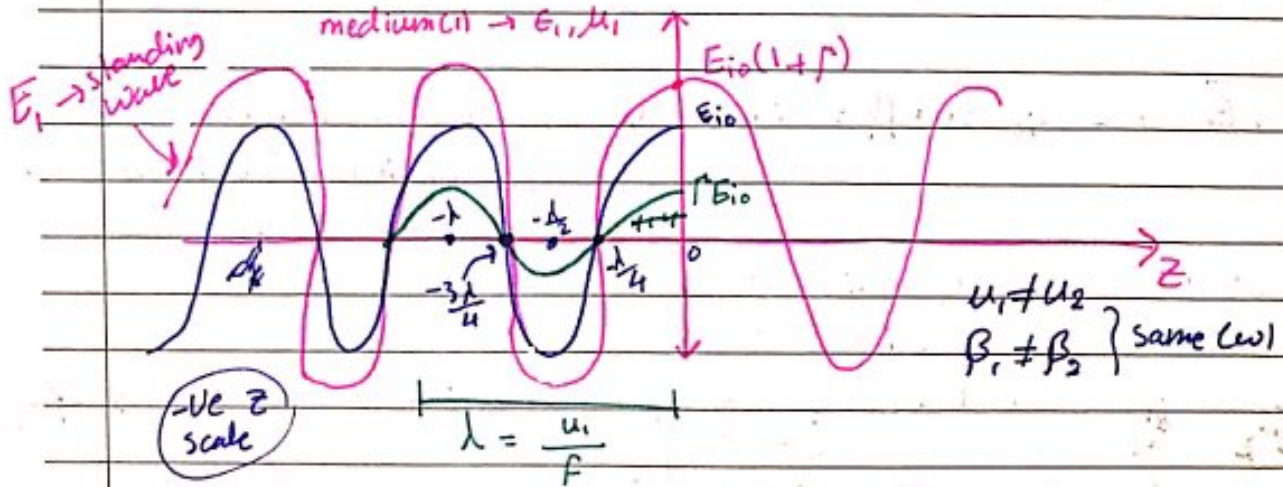 medium(1) → ε₁, μ₁
E₁ → standing wave
Eio(1+Γ)
Eio
ΓEio
-λ
-λ/2
-3λ/4
λ/4
0
Z
u₁ ≠ u₂
β₁ ≠ β₂ } same (ω)
-ve z
scale
λ = u₁/F